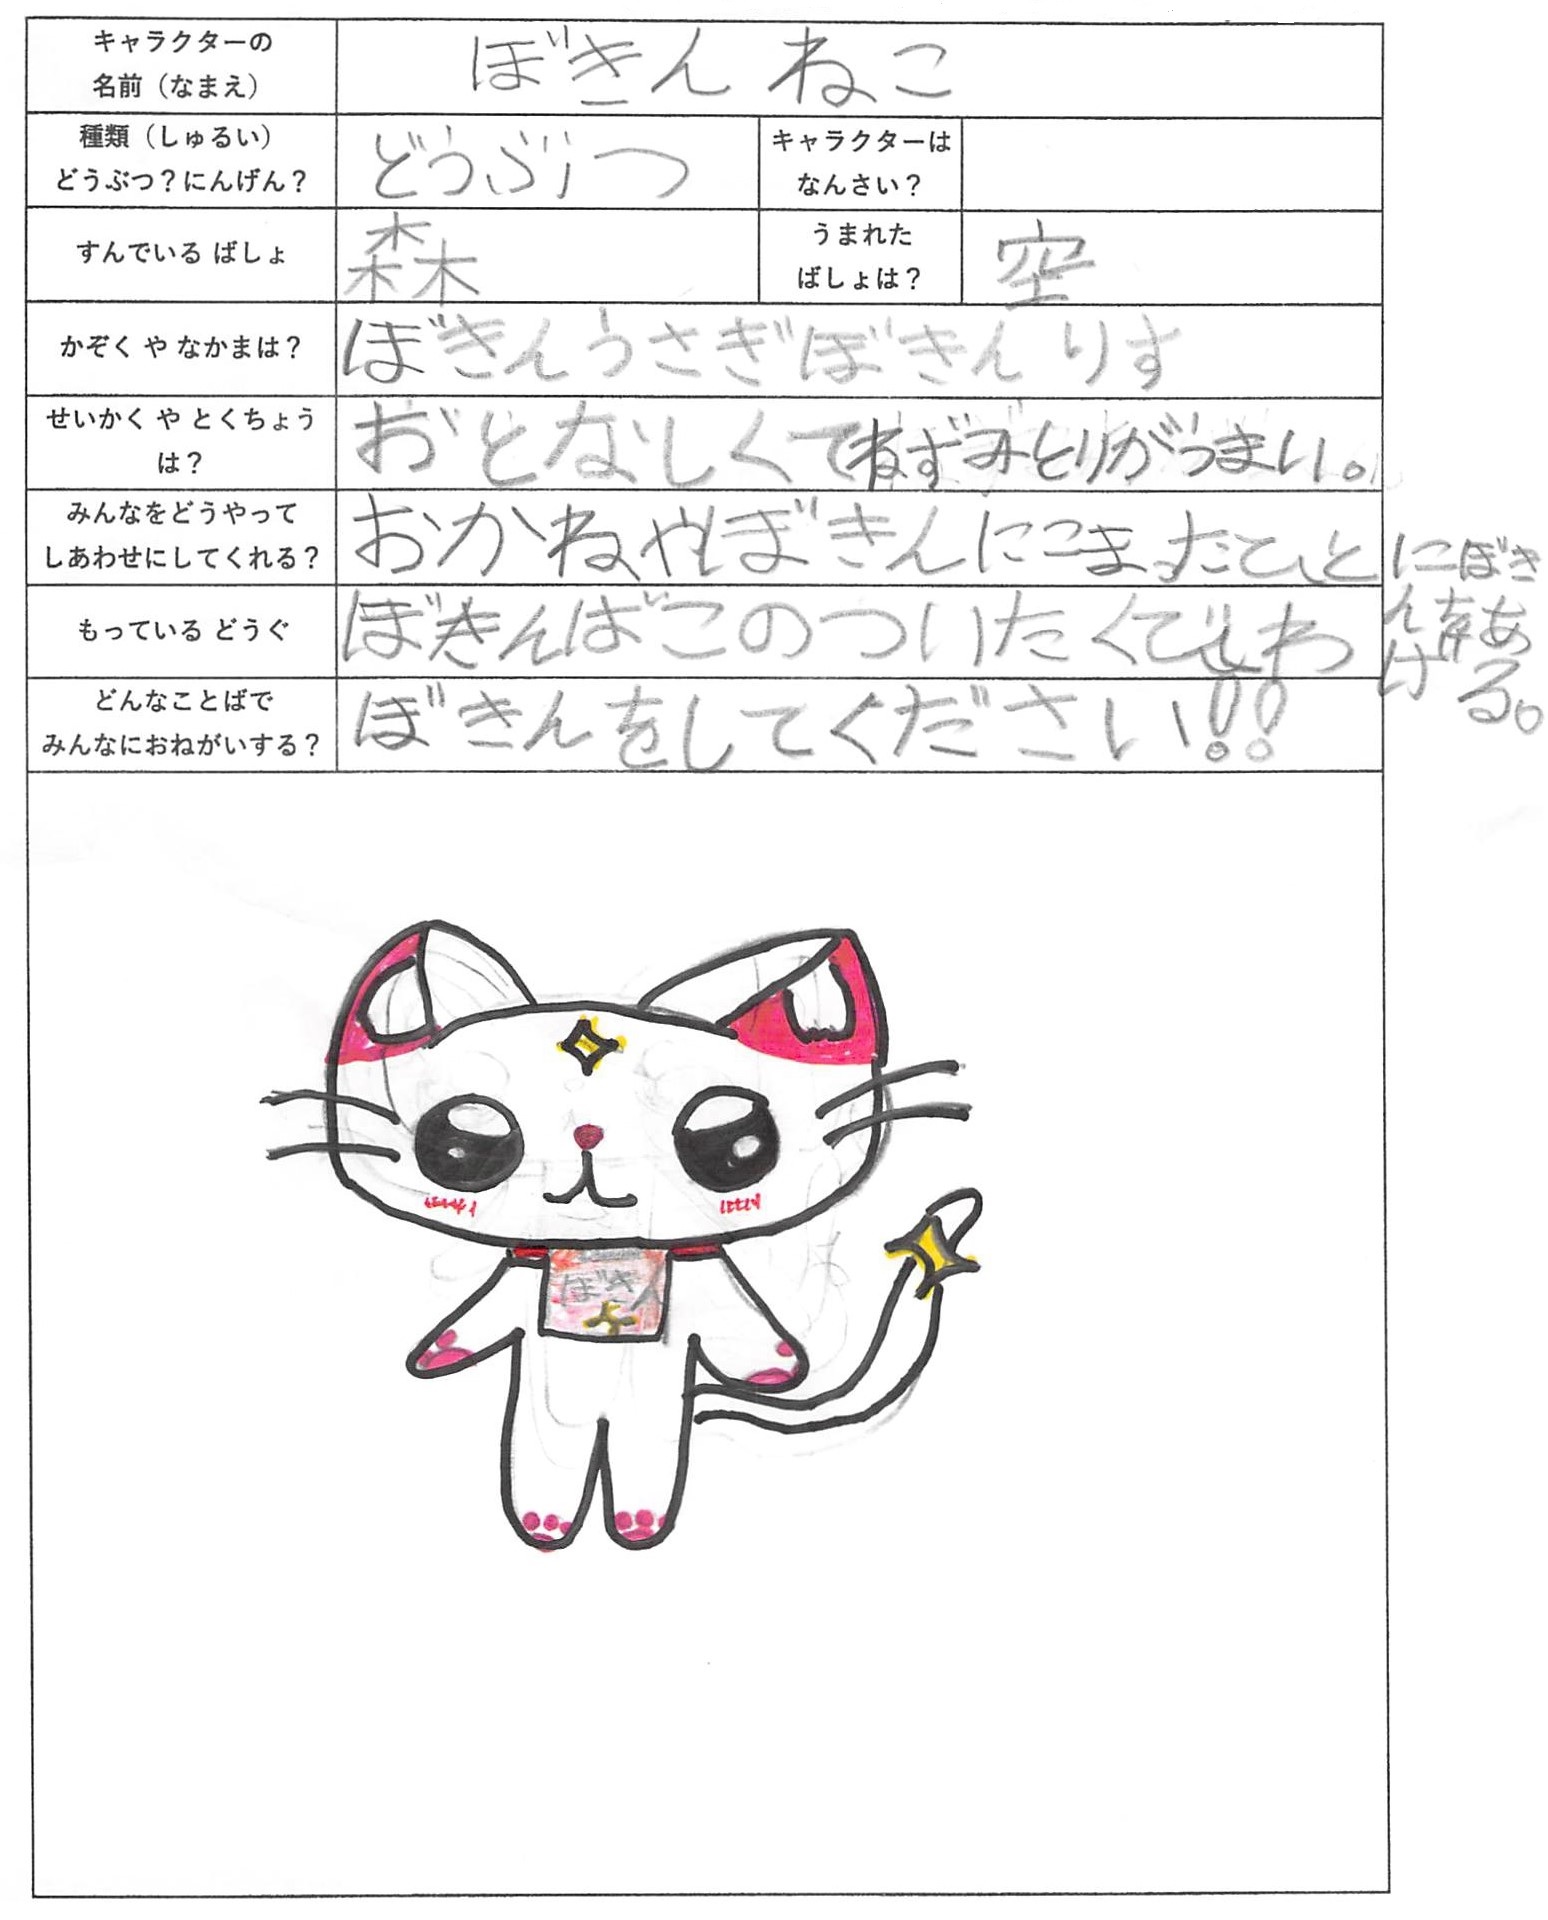 キャラクターの
名前（なまえ）
ぼきん ねこ
種類（しゅるい）
どうぶつ？にんげん？
どうぶつ
キャラクターは
なんさい？
すんでいる ばしょ
森
うまれた
ばしょは？
空
かぞく や なかまは？
ぼきんうさぎ ぼきんりす
せいかく や とくちょう
は？
おとなしくてねずみとりがうまい。
みんなをどうやって
しあわせにしてくれる？
おかねやぼきんにこまったひとにぼき
んをあ
げる。
もっている どうぐ
ぼきんばこのついたくびわ
どんなことばで
みんなにおねがいする？
ぼきんをしてください!!
ぼきん